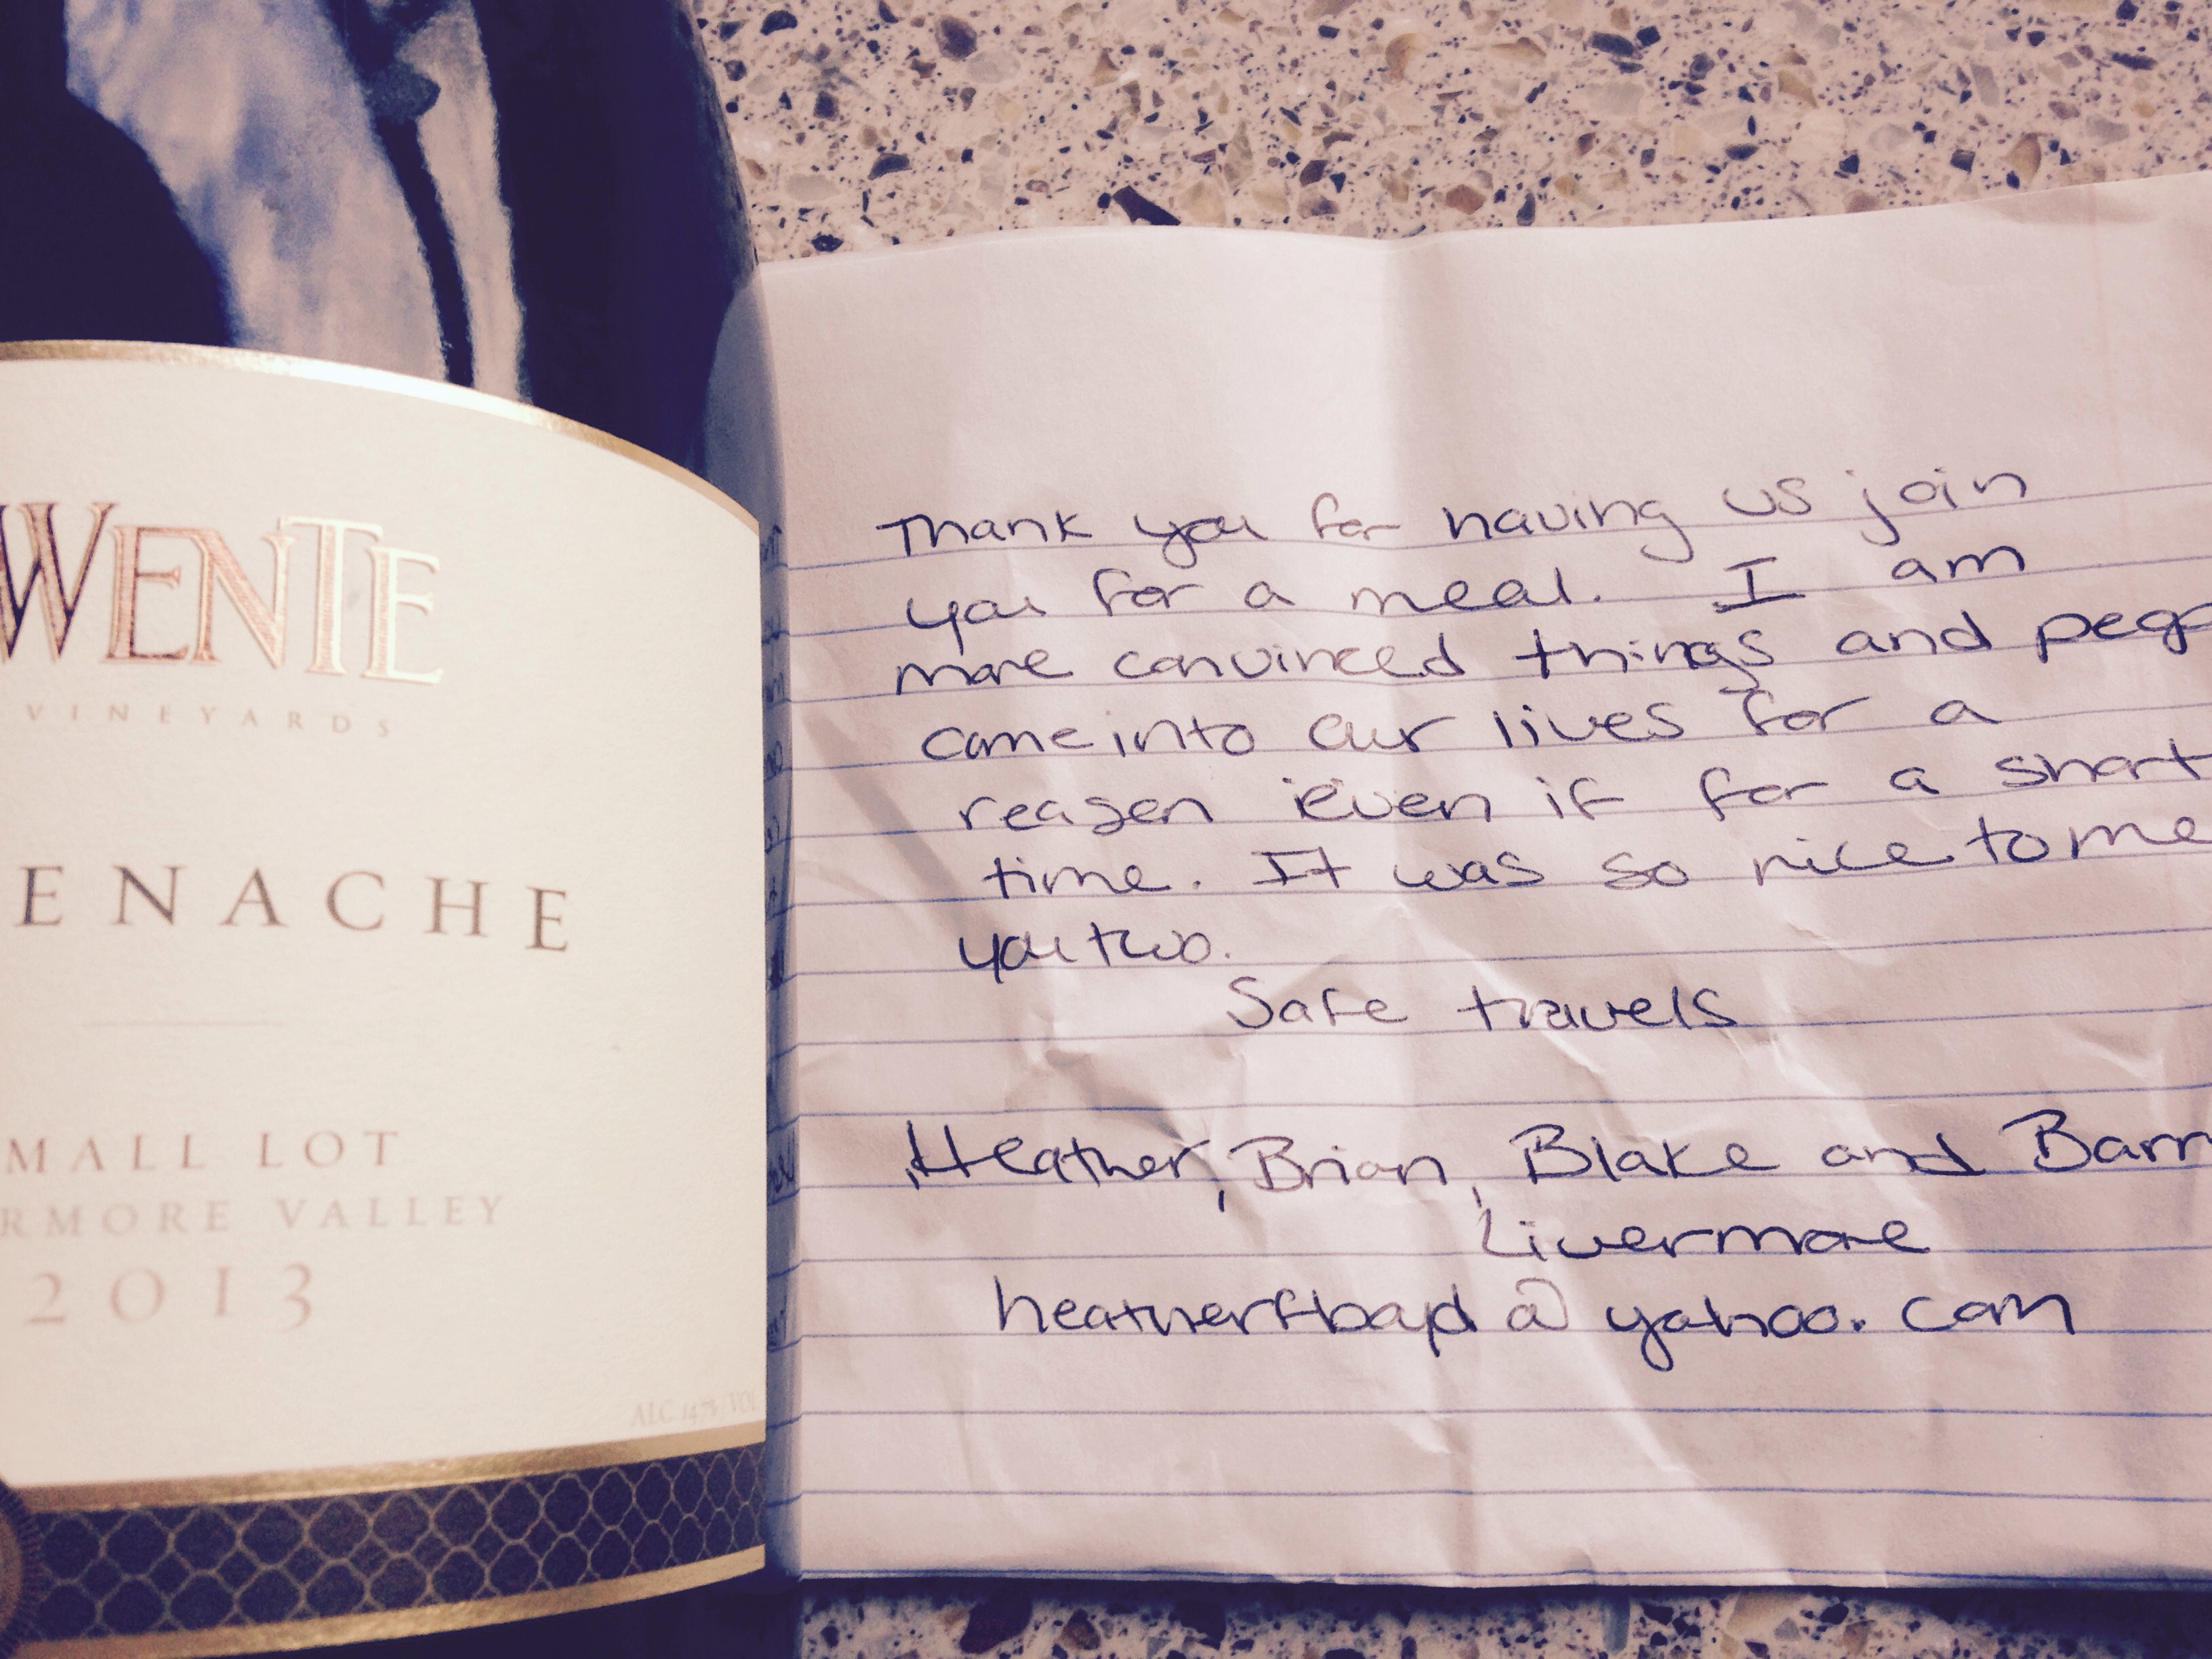 WENTE
VINEYARDS
ENACHE
MALL LOT
RMORE VALLEY
2013
ALC 14%/VOL
Thank you for having us join
you for a meal. I am
more convinced things and peop
come into our lives for a
reason even if for a short
time. It was so nice to me
you two.
Safe travels
Heather, Brian, Blake and Barr
Livermore
@yahoo.com